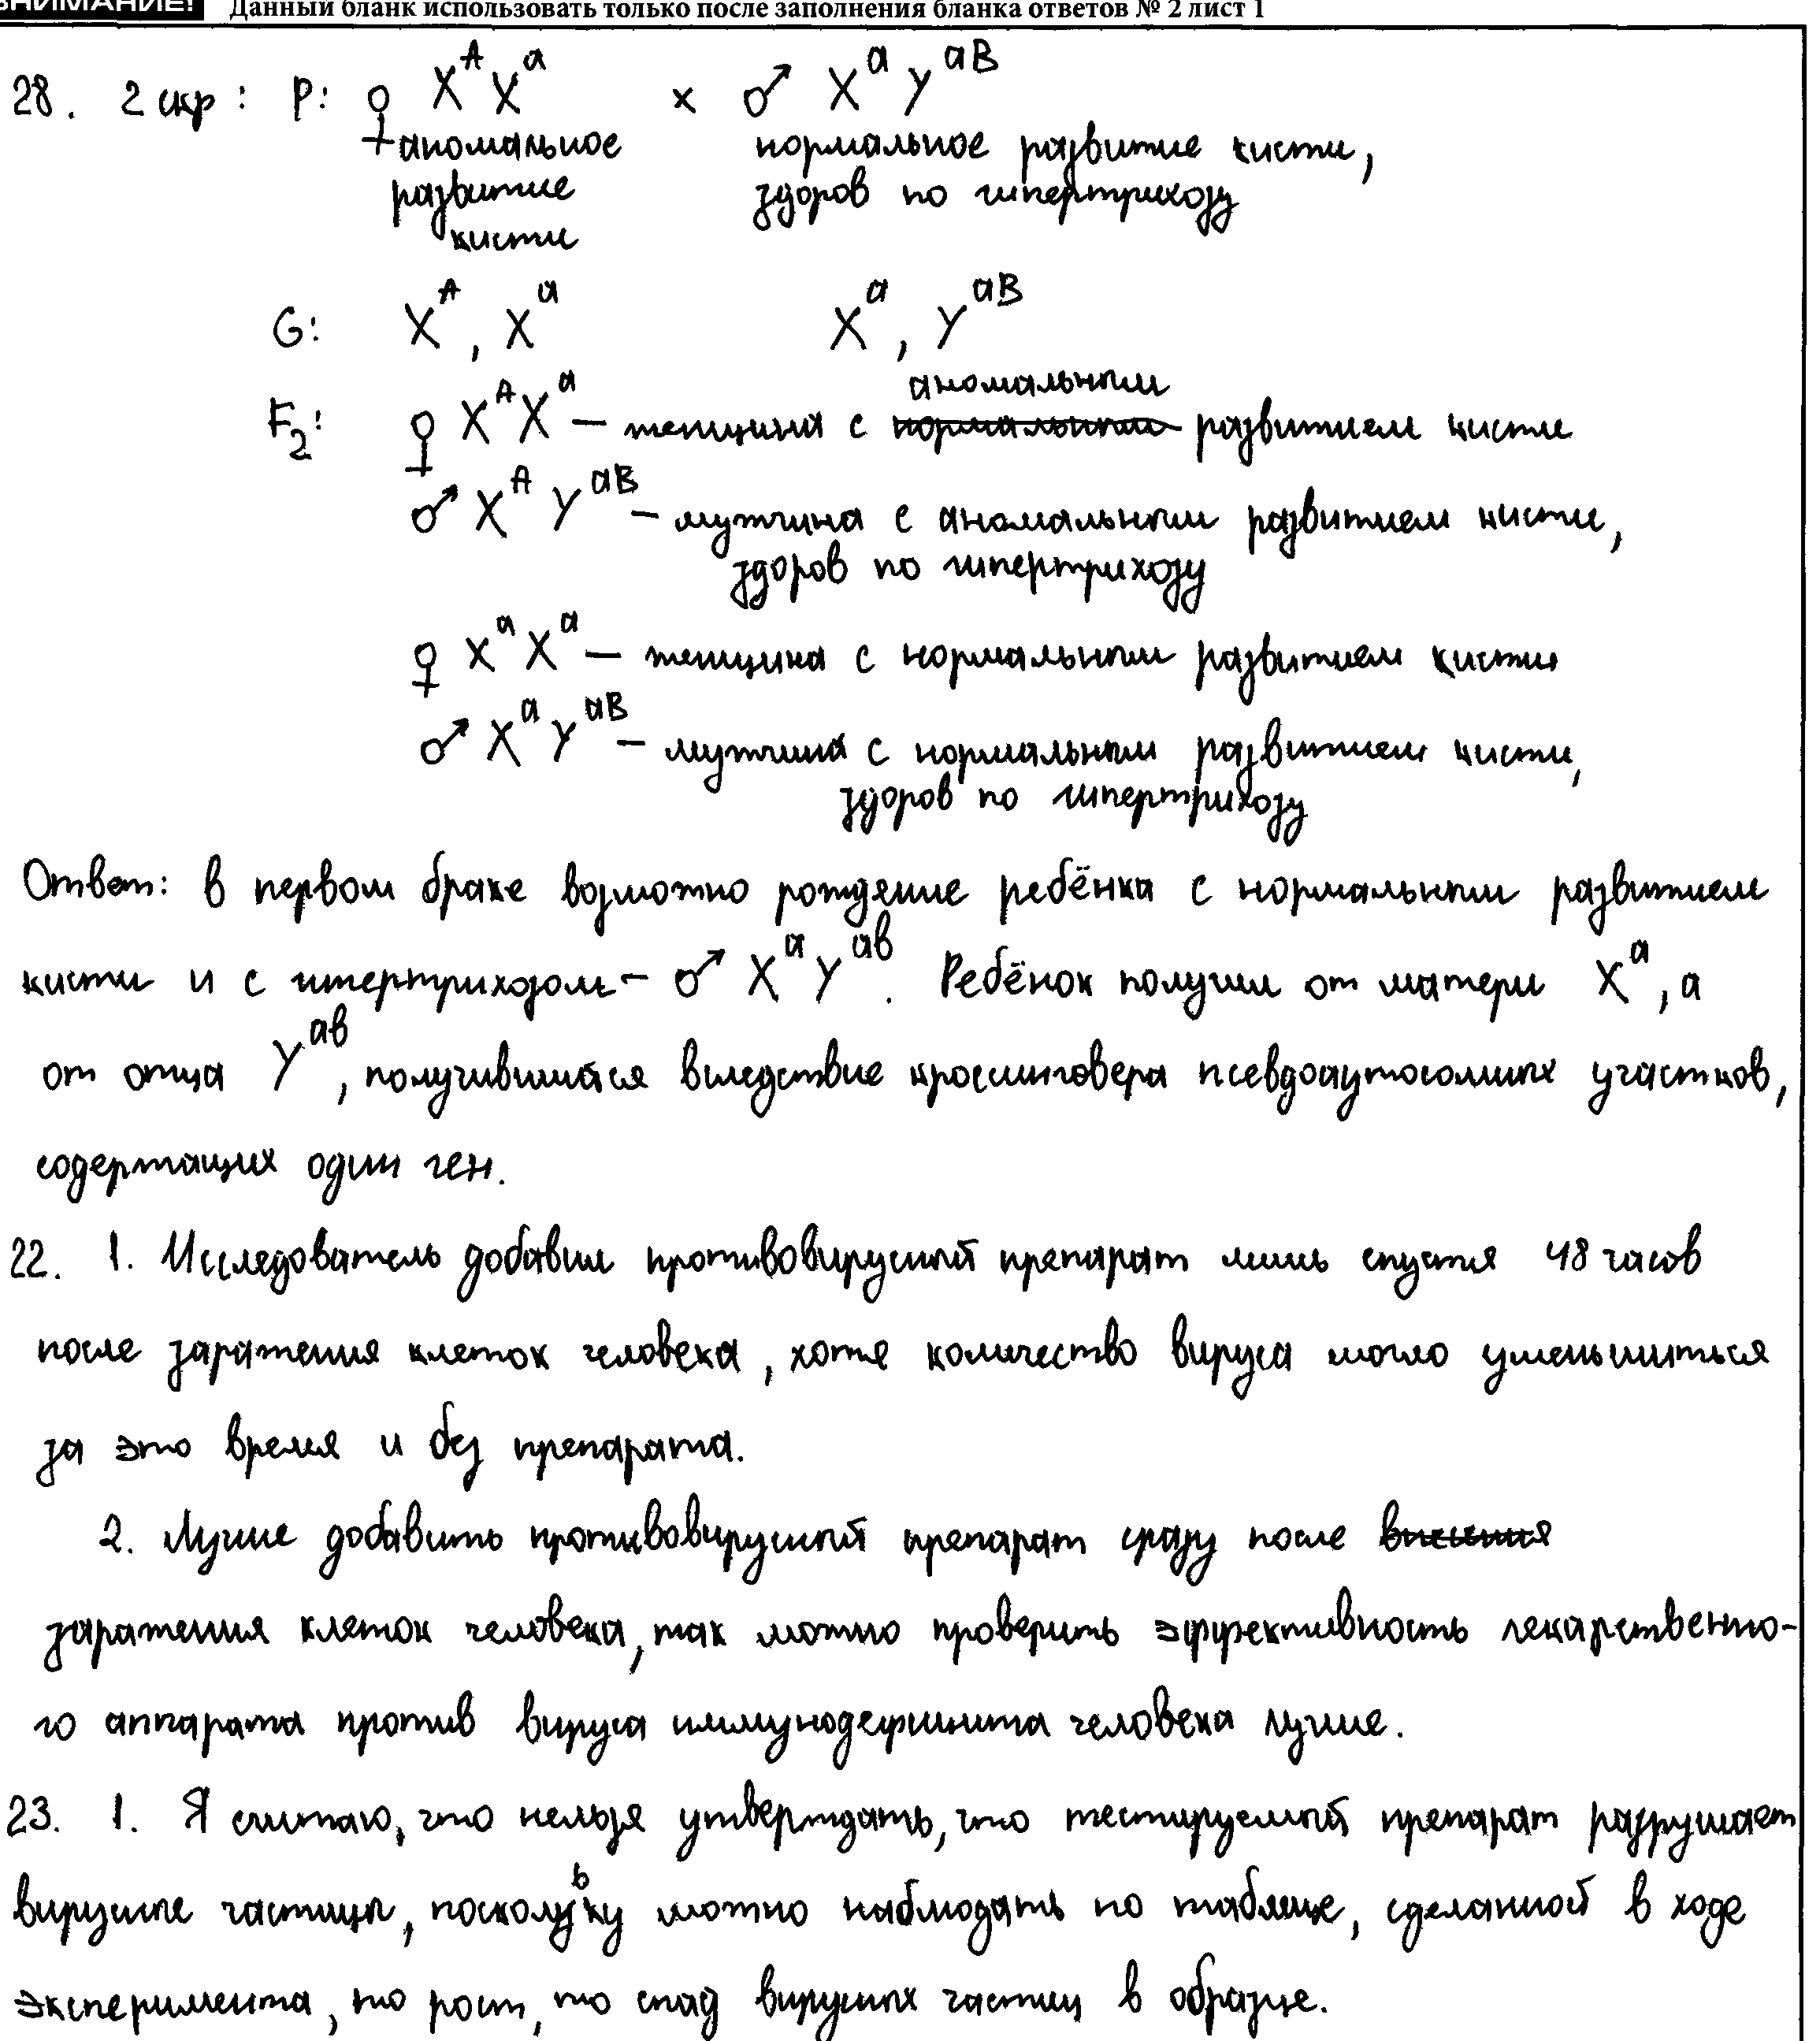 ВНИМАНИЕ! Данный бланк использовать только после заполнения бланка ответов № 2 лист 1
28. 2 скр: P: ♀ X^A X^a × ♂ X^a Y^aB
аномальное нормальное развитие кисти,
развитие здоров по гипертрихозу
кисти
G: X^A, X^a X^a, Y^aB
аномальным
F₂: ♀ X^A X^a – женщина с нормальным развитием кисти
♂ X^A Y^aB – мужчина с аномальным развитием кисти,
здоров по гипертрихозу
♀ X^a X^a – женщина с нормальным развитием кисти
♂ X^a Y^aB – мужчина с нормальным развитием кисти,
здоров по гипертрихозу
Ответ: в первом браке возможно рождение ребёнка с нормальным развитием
кисти и с гипертрихозом – ♂ X^a Y^ab. Ребёнок получил от матери X^a, а
от отца Y^ab, получившийся вследствие кроссинговера псевдоаутосомных участков,
содержащих один ген.
22. 1. Исследователь добавил противовирусный препарат лишь спустя 48 часов
после заражения клеток человека, хотя количество вируса могло уменьшиться
за это время и без препарата.
2. Лучше добавить противовирусный препарат сразу после
заражения клеток человека, так можно проверить эффективность лекарственно-
го аппарата против вируса иммунодефицита человека лучше.
23. 1. Я считаю, что нельзя утверждать, что тестируемый препарат разрушает
вирусные частицы, поскольку можно наблюдать по таблице, сделанной в ходе
эксперимента, то рост, то спад вирусных частиц в образце.